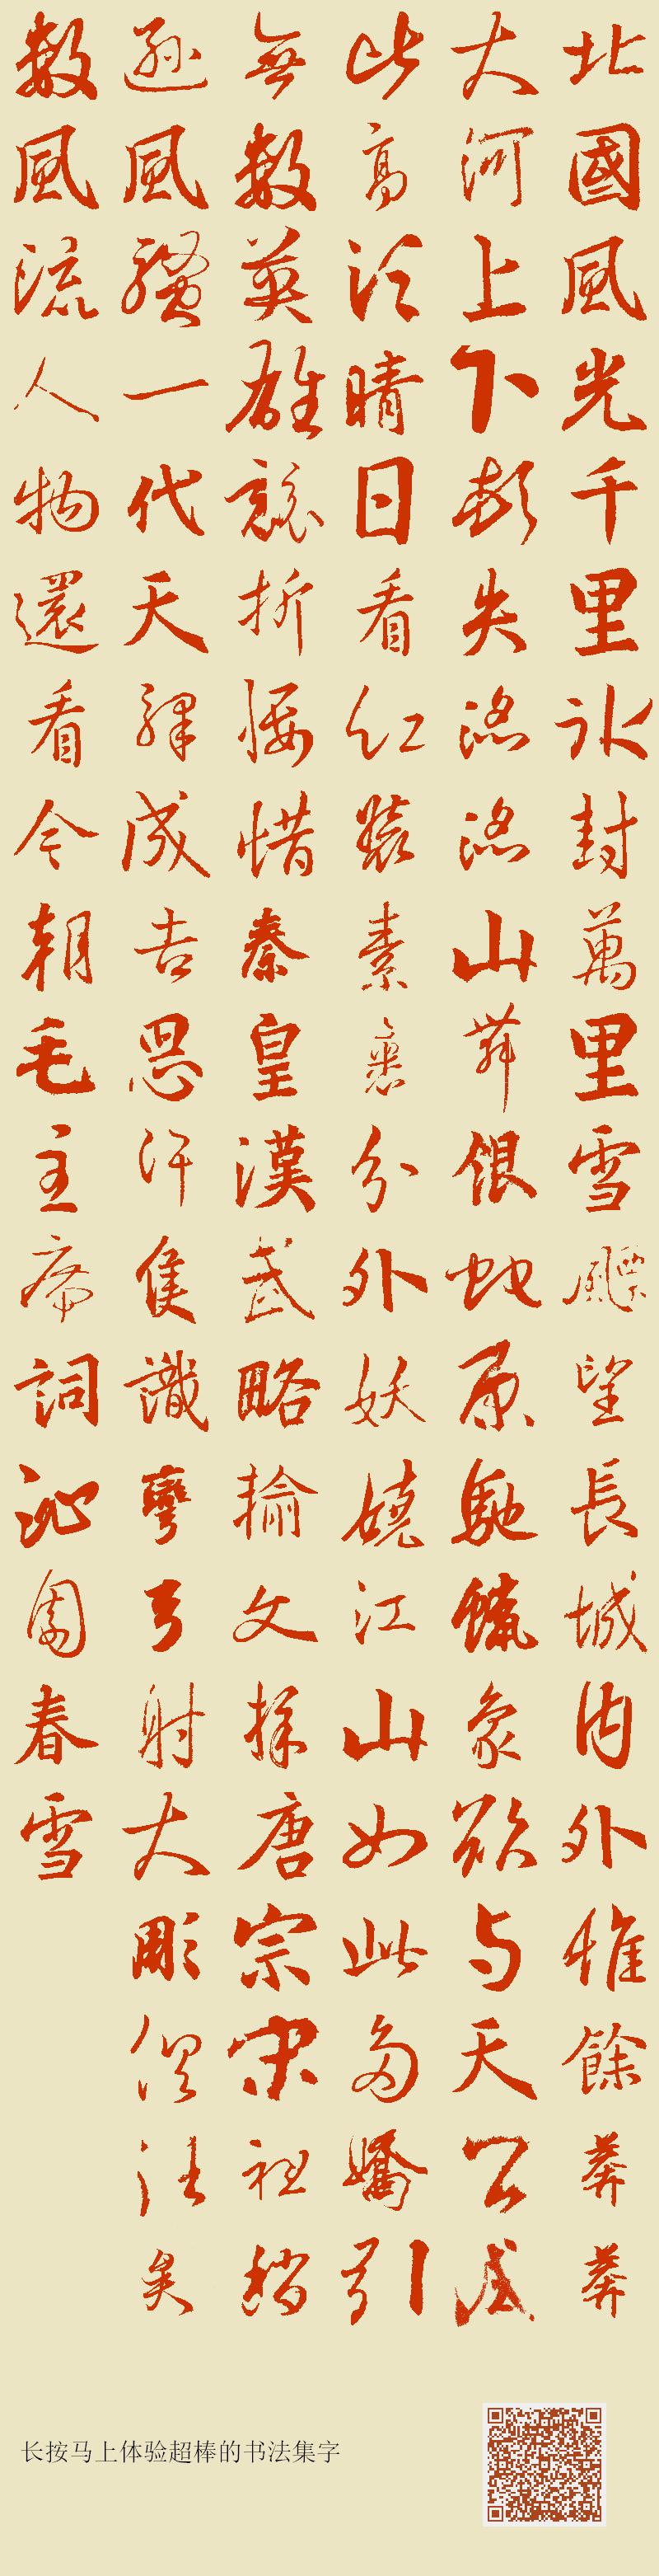 北國風光千里冰封萬里雪飄望長城内外惟餘莽莽
大河上下頓失滔滔山舞銀蛇原馳蠟象欲与天公試
比高須晴日看紅裝素裹分外妖嬈江山如此多嬌引
無數英雄競折腰惜秦皇漢武略輸文採唐宗宋祖稍
遜風騷一代天驕成吉思汗隻識彎弓射大彫俱往矣
數風流人物還看今朝毛主席詞沁園春雪
长按马上体验超棒的书法集字